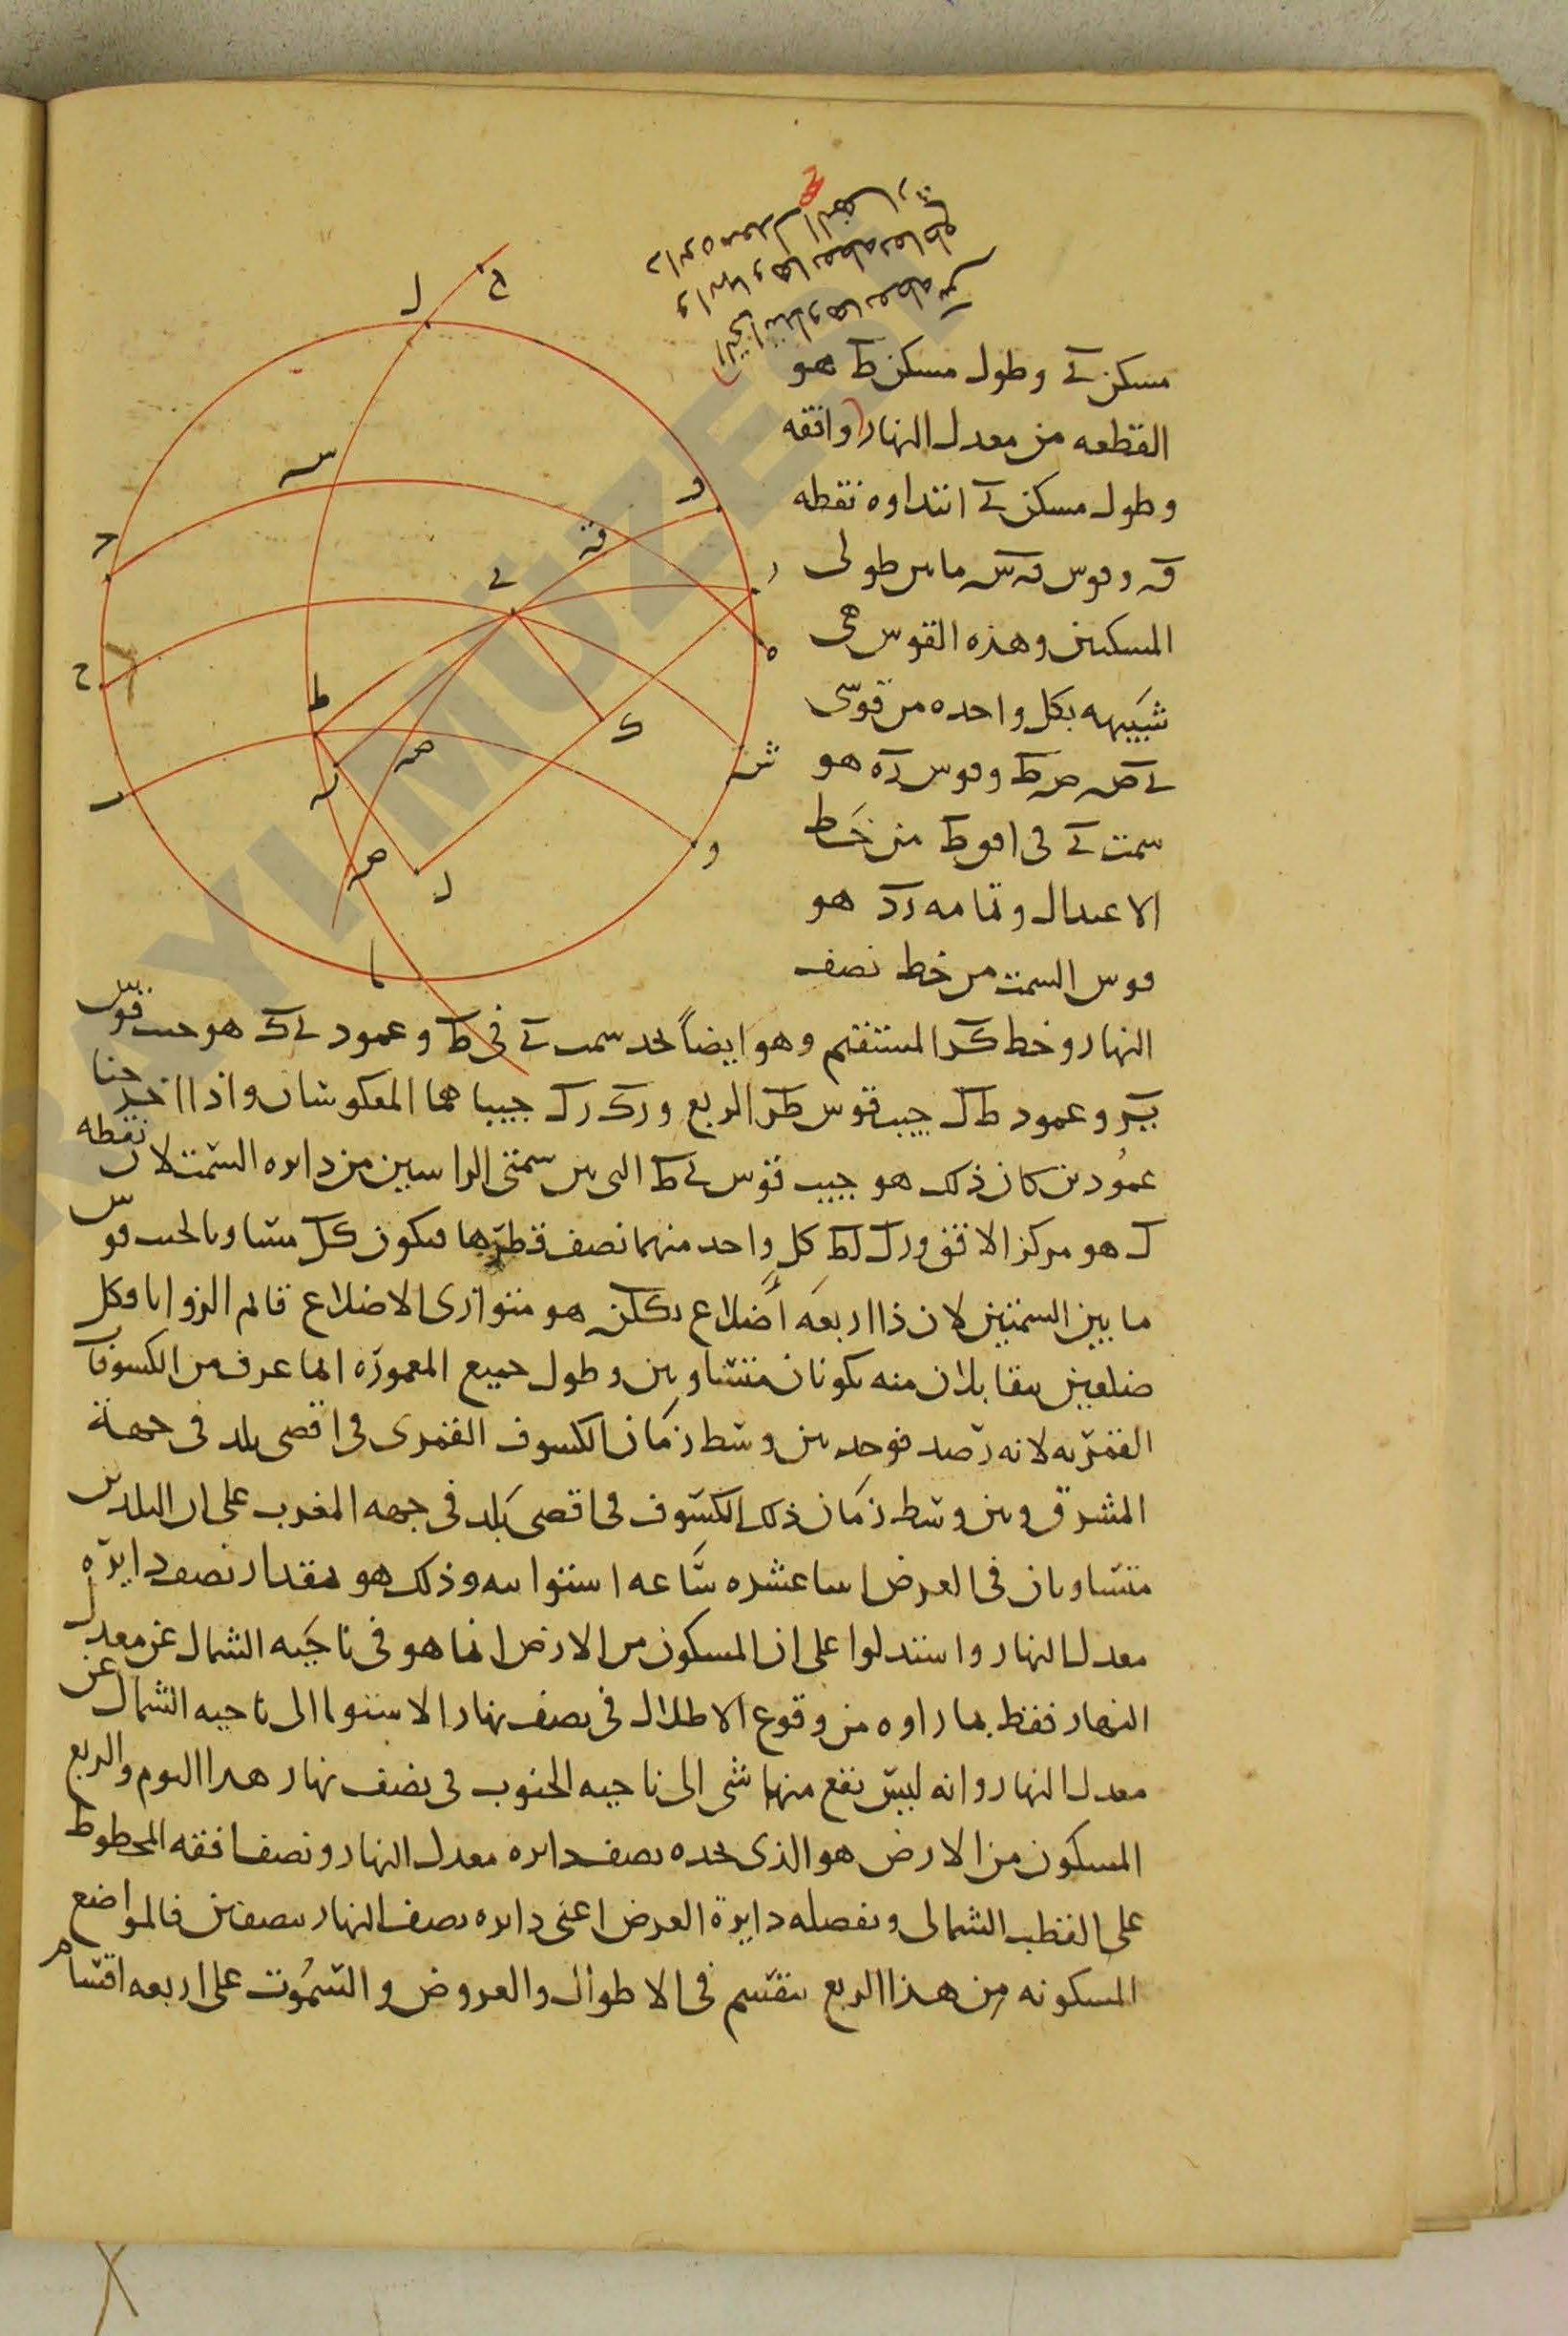 مسكن ے وطول مسكن ط هو
القطعه من معدل النهار وافقه
وطول مسكن ے ابتداوه نقطه
المسكنين وهذه القوس هى
شبيهه بكل واحده من قوسى
سمت ے فى افق ط من خط
الاعتدال وتمامه رد هو
قوس السمت من خط نصف
النهار وخط كل المستقيم وهو ايضاً سمت ے فى ط وعمود ےك هو جيب قوس
ے ر وعمود ط ل جيب قوس ط ر الربع و رك رل جيباهما المعكوسان واذا اخرجنا
عمودين كان ذلك هو جيب قوس ے ط التى بين سمتى الراسين من دايره السمت لان نقطه
ل هو مركز الافق و رل لط كل واحد منهما نصف قطرها فيكون كل مساويا لجيب قوس
ما بين السمتين لان ذا اربعه أضلاع هو متوازى الاضلاع قائم الزوايا وكل
ضلعين يتقابلان منه يكونان متساويين وطول جميع المعموره انما عرف من الكسوفات
القمريه لانه رصد فوجد بين وسط زمان الكسوف القمرى فى اقصى بلد فى جهة
المشرق وبين وسط زمان ذلك الكسوف فى اقصى بلد فى جهه المغرب على ان البلدين
متساويان فى العرض اثنا عشره ساعه استوائيه وذلك هو مقدار نصف دايره
معدل النهار واستدلوا على ان المسكون من الارض انما هو فى ناحيه الشمال عن معدل
النهار فقط بما راوه من وقوع الاظلال فى نصف نهار الاستواء الى ناحيه الشمال عن
معدل النهار وانه ليس يقع منها شى الى ناحيه الجنوب فى نصف نهار هذا اليوم والربع
المسكون من الارض هو الذى يحده نصف دايره معدل النهار ونصف افقه المخطوط
على القطب الشمالى ويفصله دايرة العرض اعنى دايره نصف النهار بنصفين فالمواضع
المسكونه من هذا الربع ينقسم فى الاطوال والعروض والسموت على اربعه اقسام